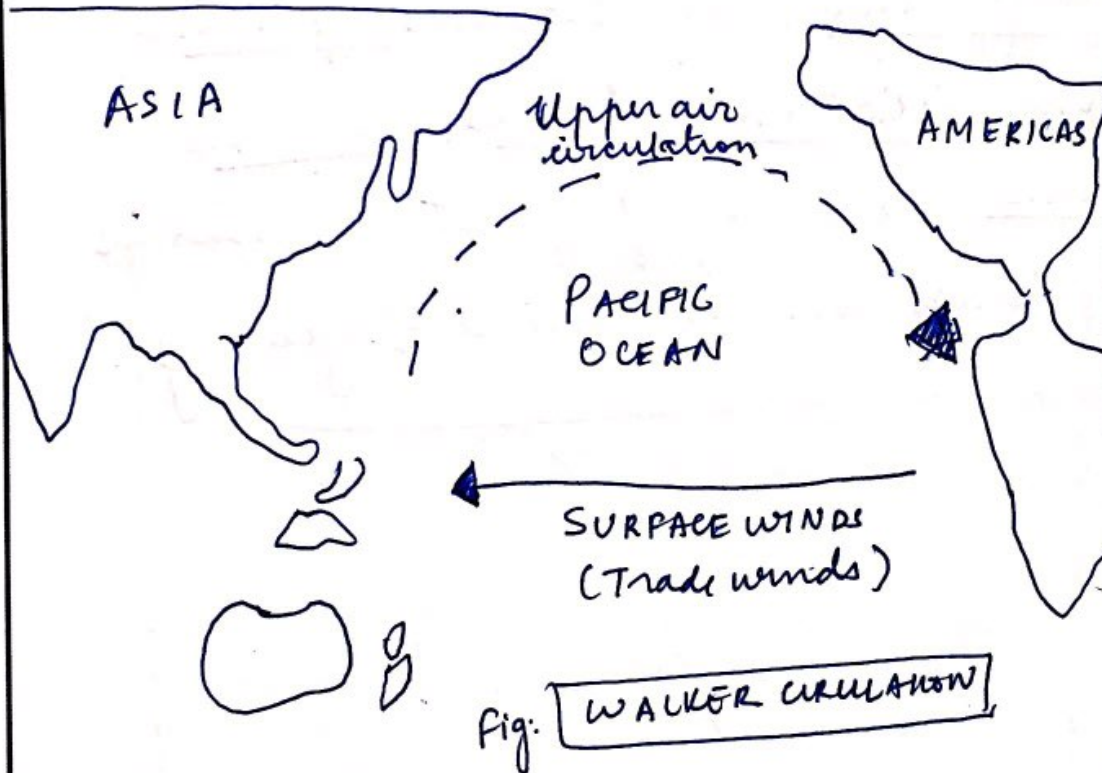 ASIA
Upper air
circulation
AMERICAS
PACIFIC
OCEAN
SURFACE WINDS
(Trade winds)
Fig: WALKER CIRCULATION